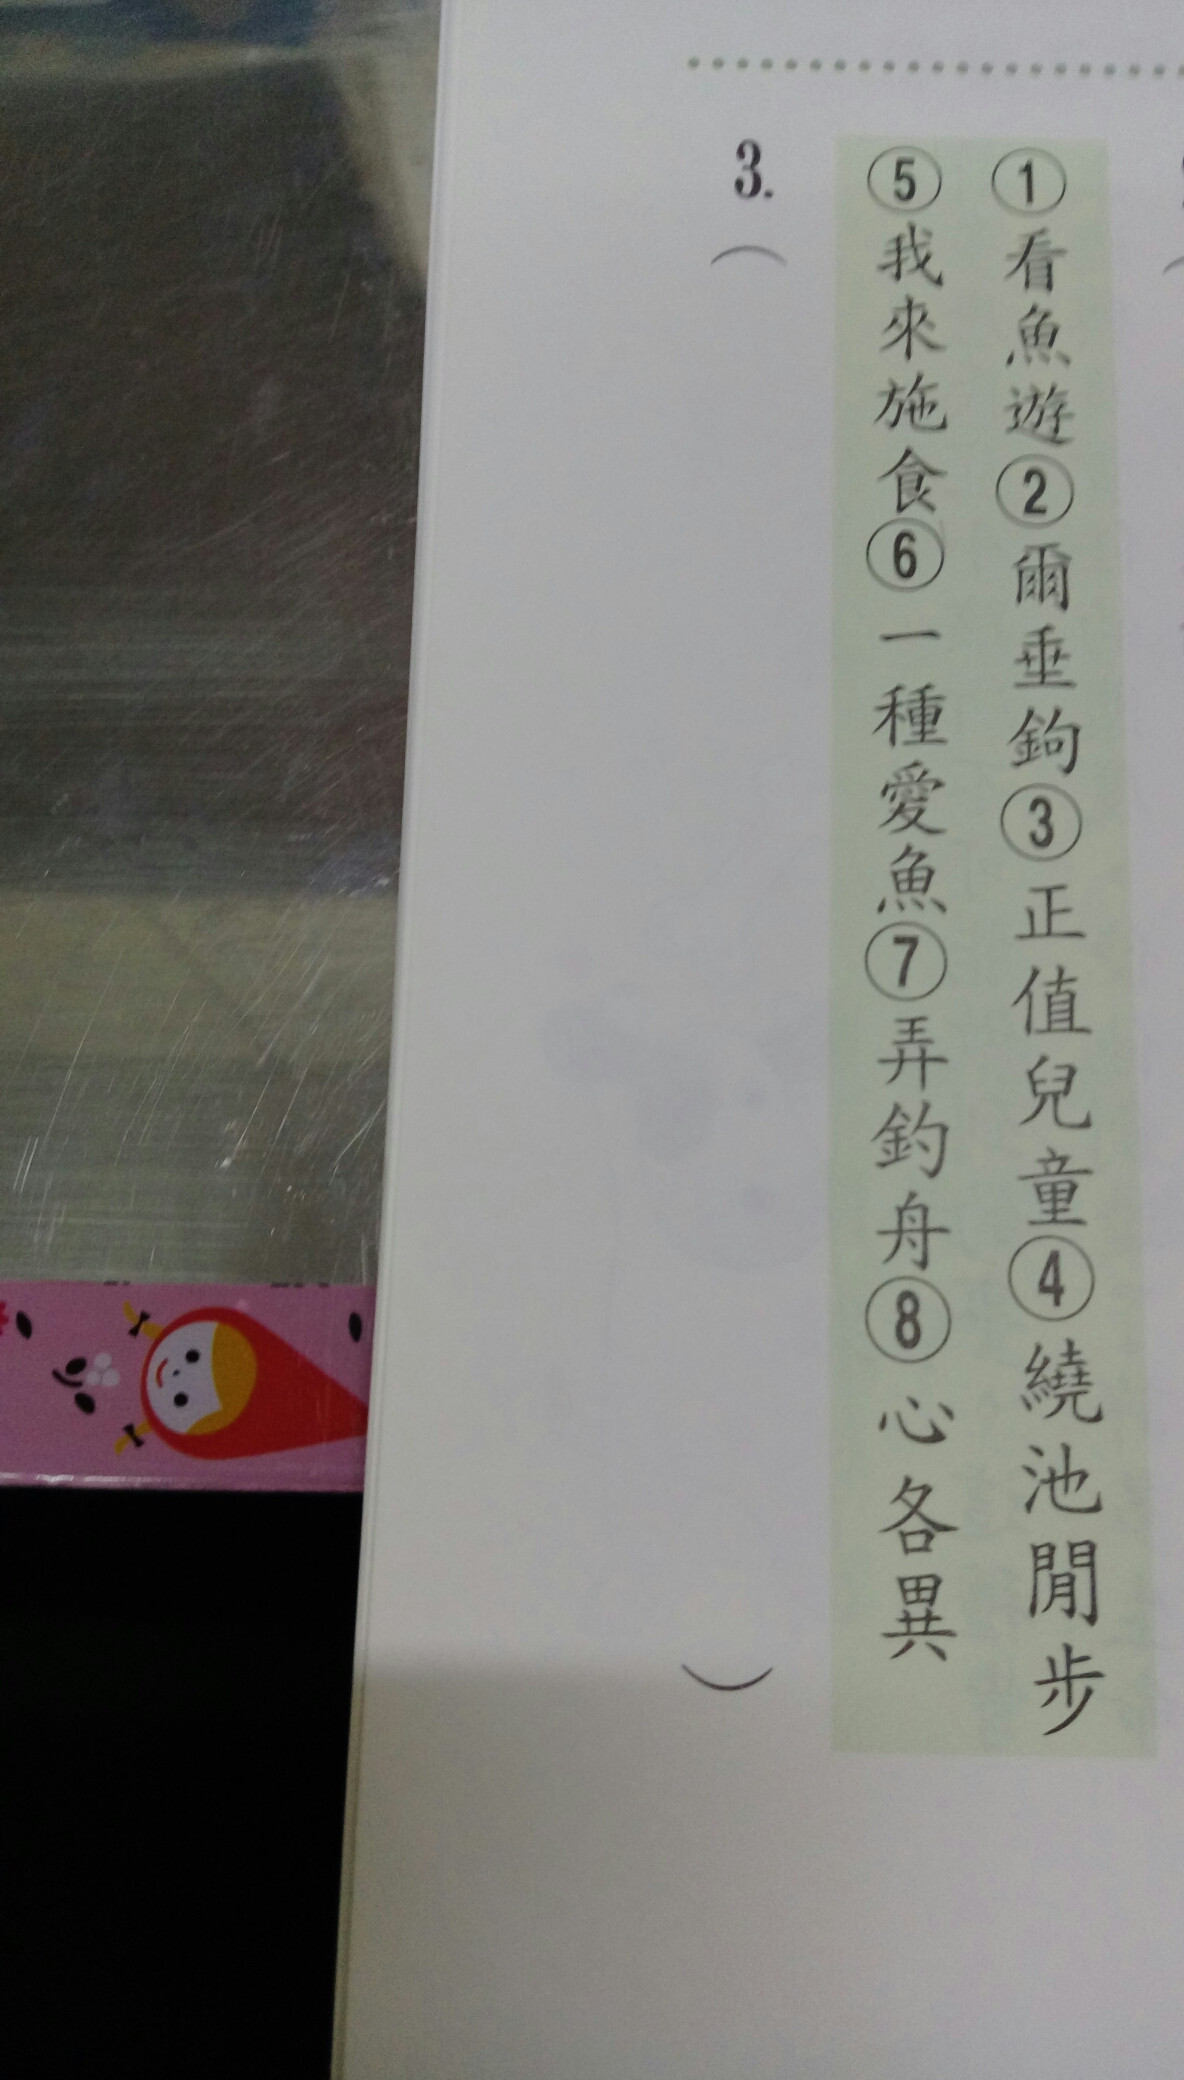 ①看魚遊②爾垂鉤③正值兒童④繞池閒步
⑤我來施食⑥一種愛魚⑦弄釣舟⑧心各異
3. （ ）